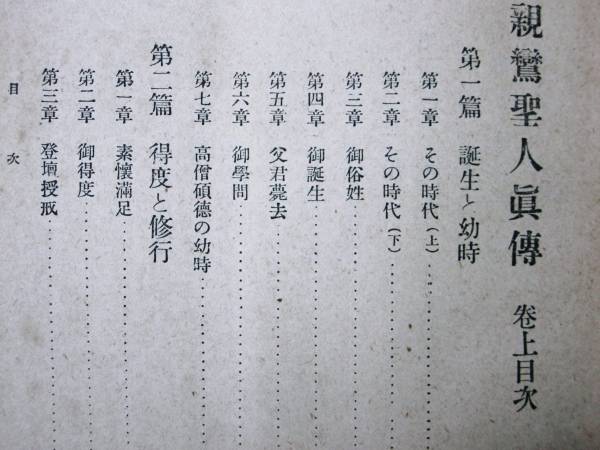 親鸞聖人眞傳 卷上目次
第一篇 誕生と幼時
第一章 その時代(上)
第二章 その時代(下)
第三章 御俗姓
第四章 御誕生
第五章 父君薨去
第六章 御學問
第七章 高僧碩德の幼時
第二篇 得度と修行
第一章 素懷滿足
第二章 御得度
第三章 登壇授戒
目次